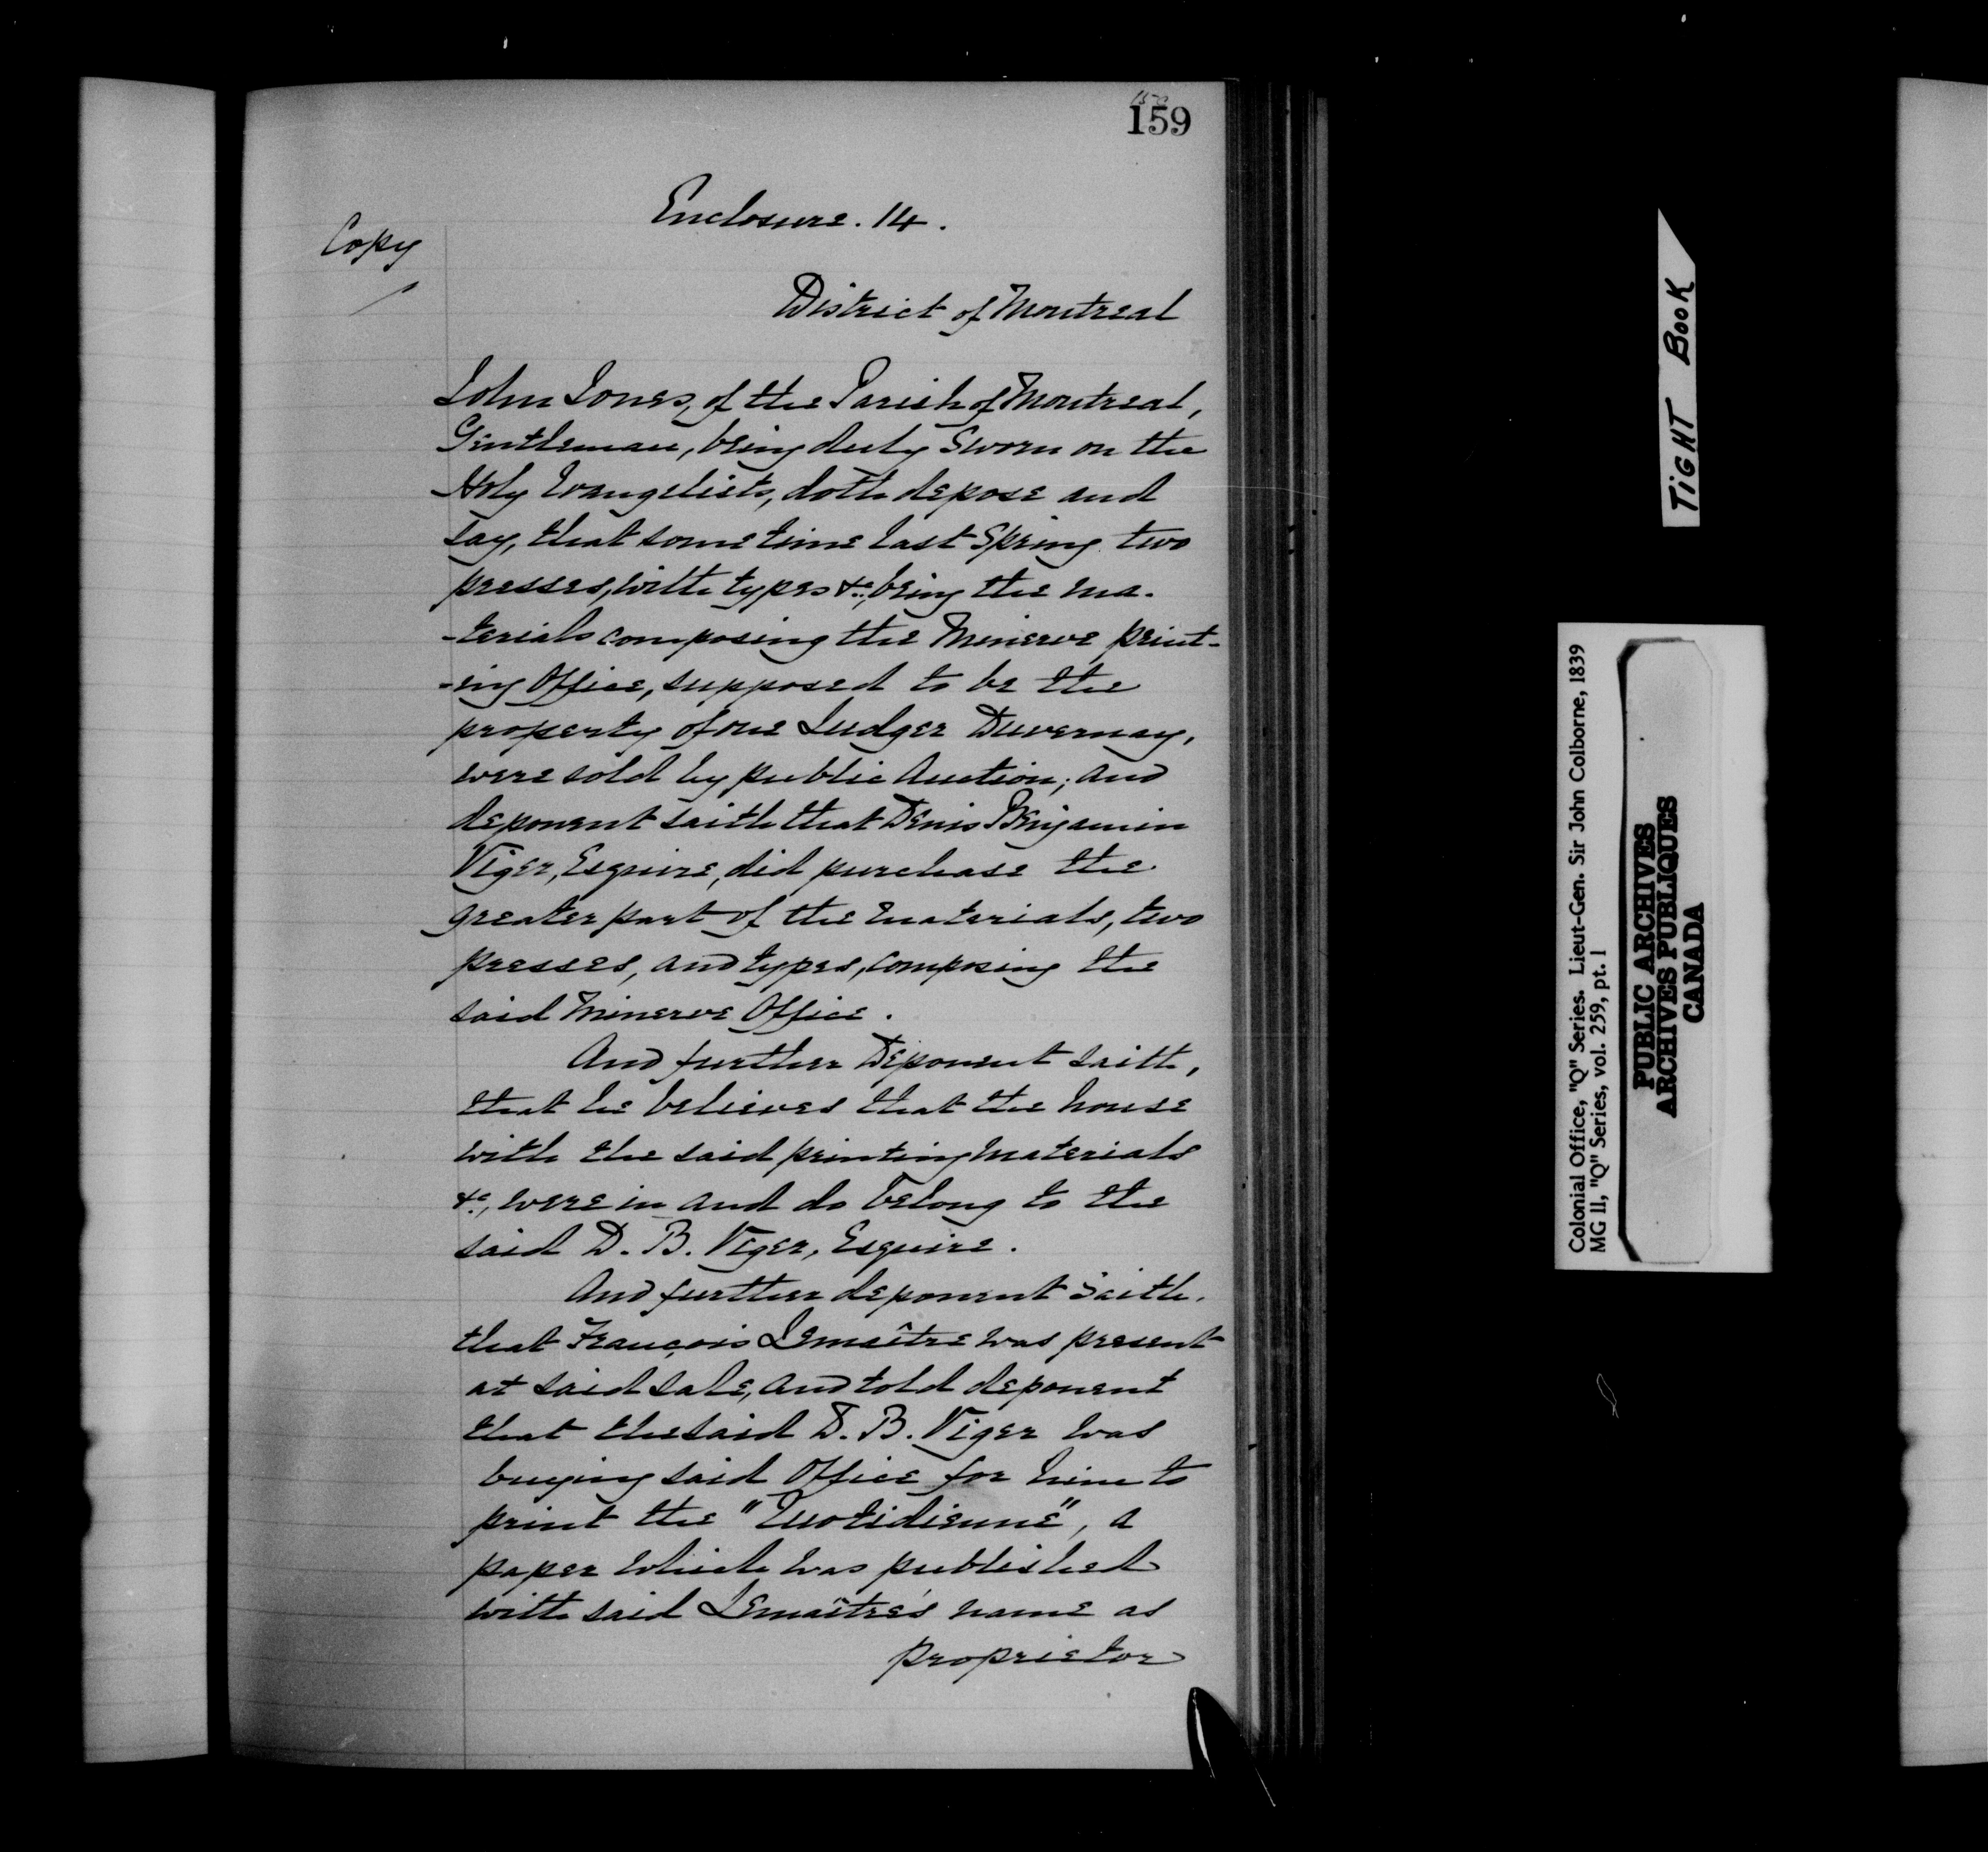 159
Enclosure. 14.
Copy
District of Montreal
John Jones, of the Parish of Montreal,
Gentleman, being duly Sworn on the
Holy Evangelists, doth depose and
say, that sometime last Spring two
presses, with types &c., being the ma-
-terials composing the Minerve print-
-ing Office, supposed to be the
property of one Ludger Duvernay,
were sold by public Auction; and
deponent saith that Denis Benjamin
Viger, Esquire, did purchase the
greater part of the materials, two
presses, and types, composing the
said Minerve Office.
And further Deponent saith,
that he believes that the house
with the said printing materials
&c., were in and do belong to the
said D. B. Viger, Esquire.
And further deponent saith,
that François Lemaître was present
at said sale, and told deponent
that the said D. B. Viger was
buying said Office for him to
print the "Quotidienne", a
paper which was published
with said Lemaître's name as
proprietor
TIGHT BOOK
Colonial Office, "Q" Series. Lieut-Gen. Sir John Colborne, 1839
MG 11, "Q" Series, vol. 259, pt. 1
PUBLIC ARCHIVES
ARCHIVES PUBLIQUES
CANADA